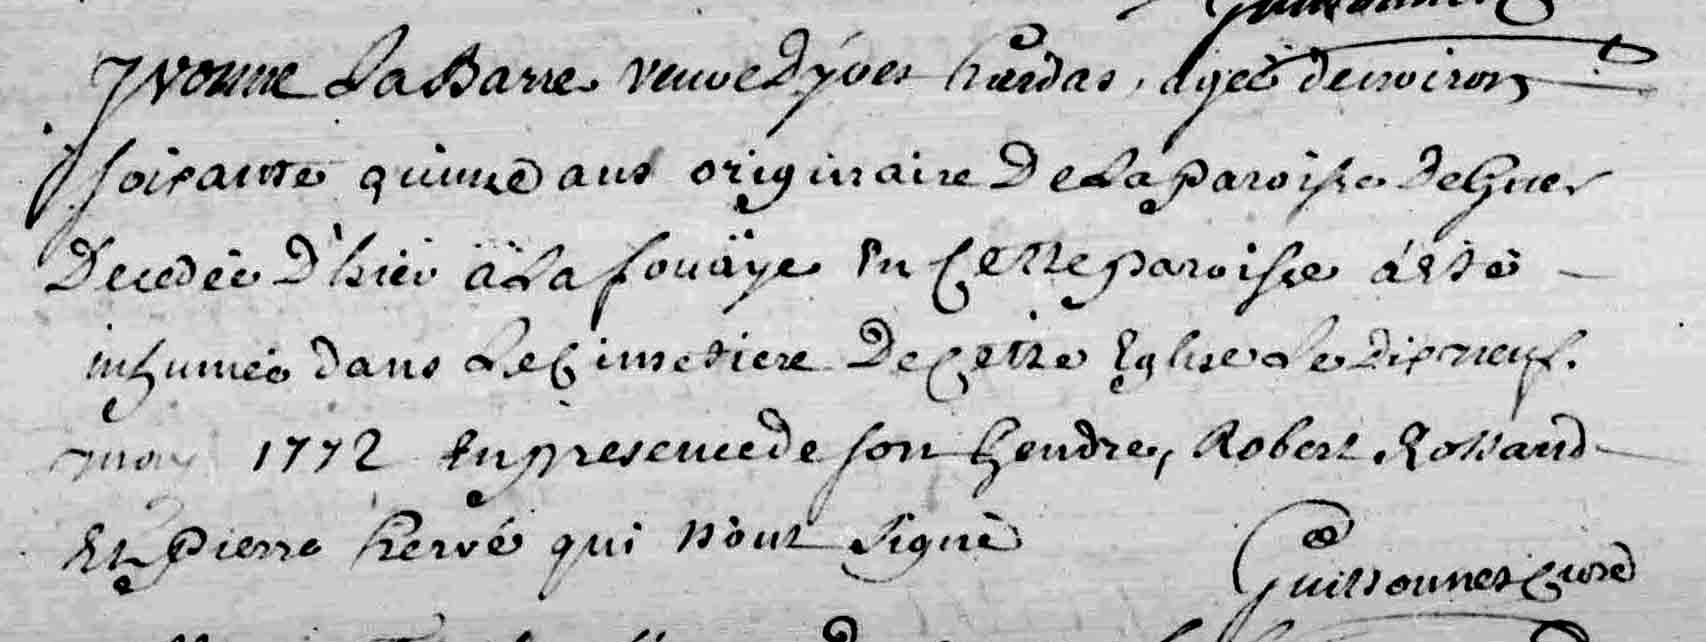 Yvonne LaBarre veuve d'yves hardas, agée denviron
soixante quinze ans originaire De La paroisse De guer
Decedée D'hier à La fouäye En cette paroisse a été
inhumée dans Le Cimetiere De cette Eglise Le dix neuf.
may 1772 En presence de son gendre, Robert Rossand
Et pierre hervé qui n'ont signé
curé